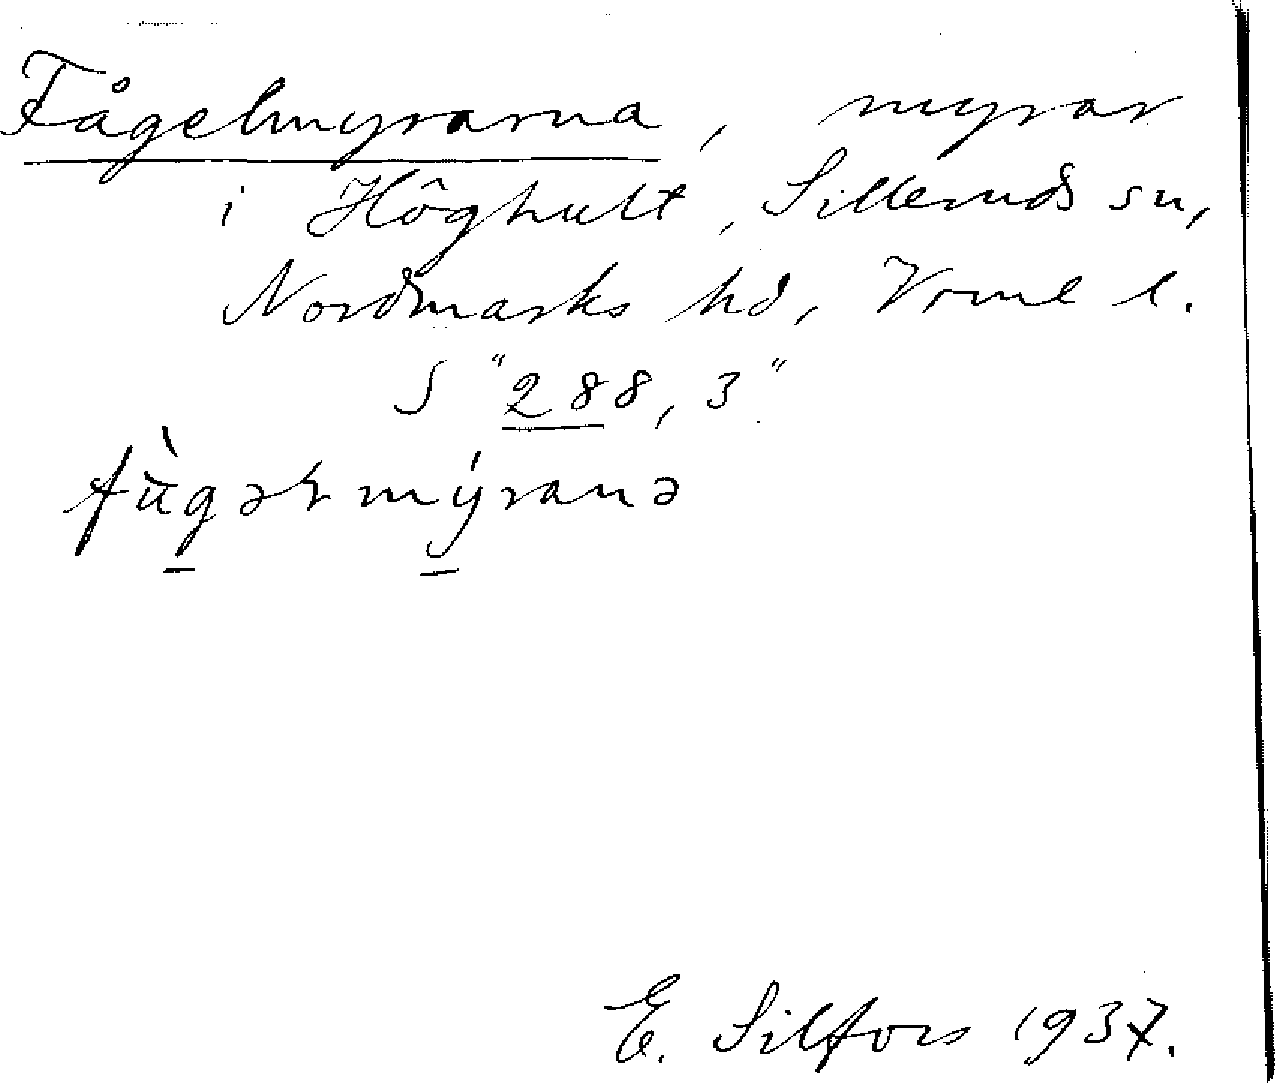 Fågelmyrarna, myrar
i Höghult, Silleruds sn,
Nordmarks hd, Vrml l.
S "288, 3"
fù̄gəɫmýranə
E. Silfors 1937.